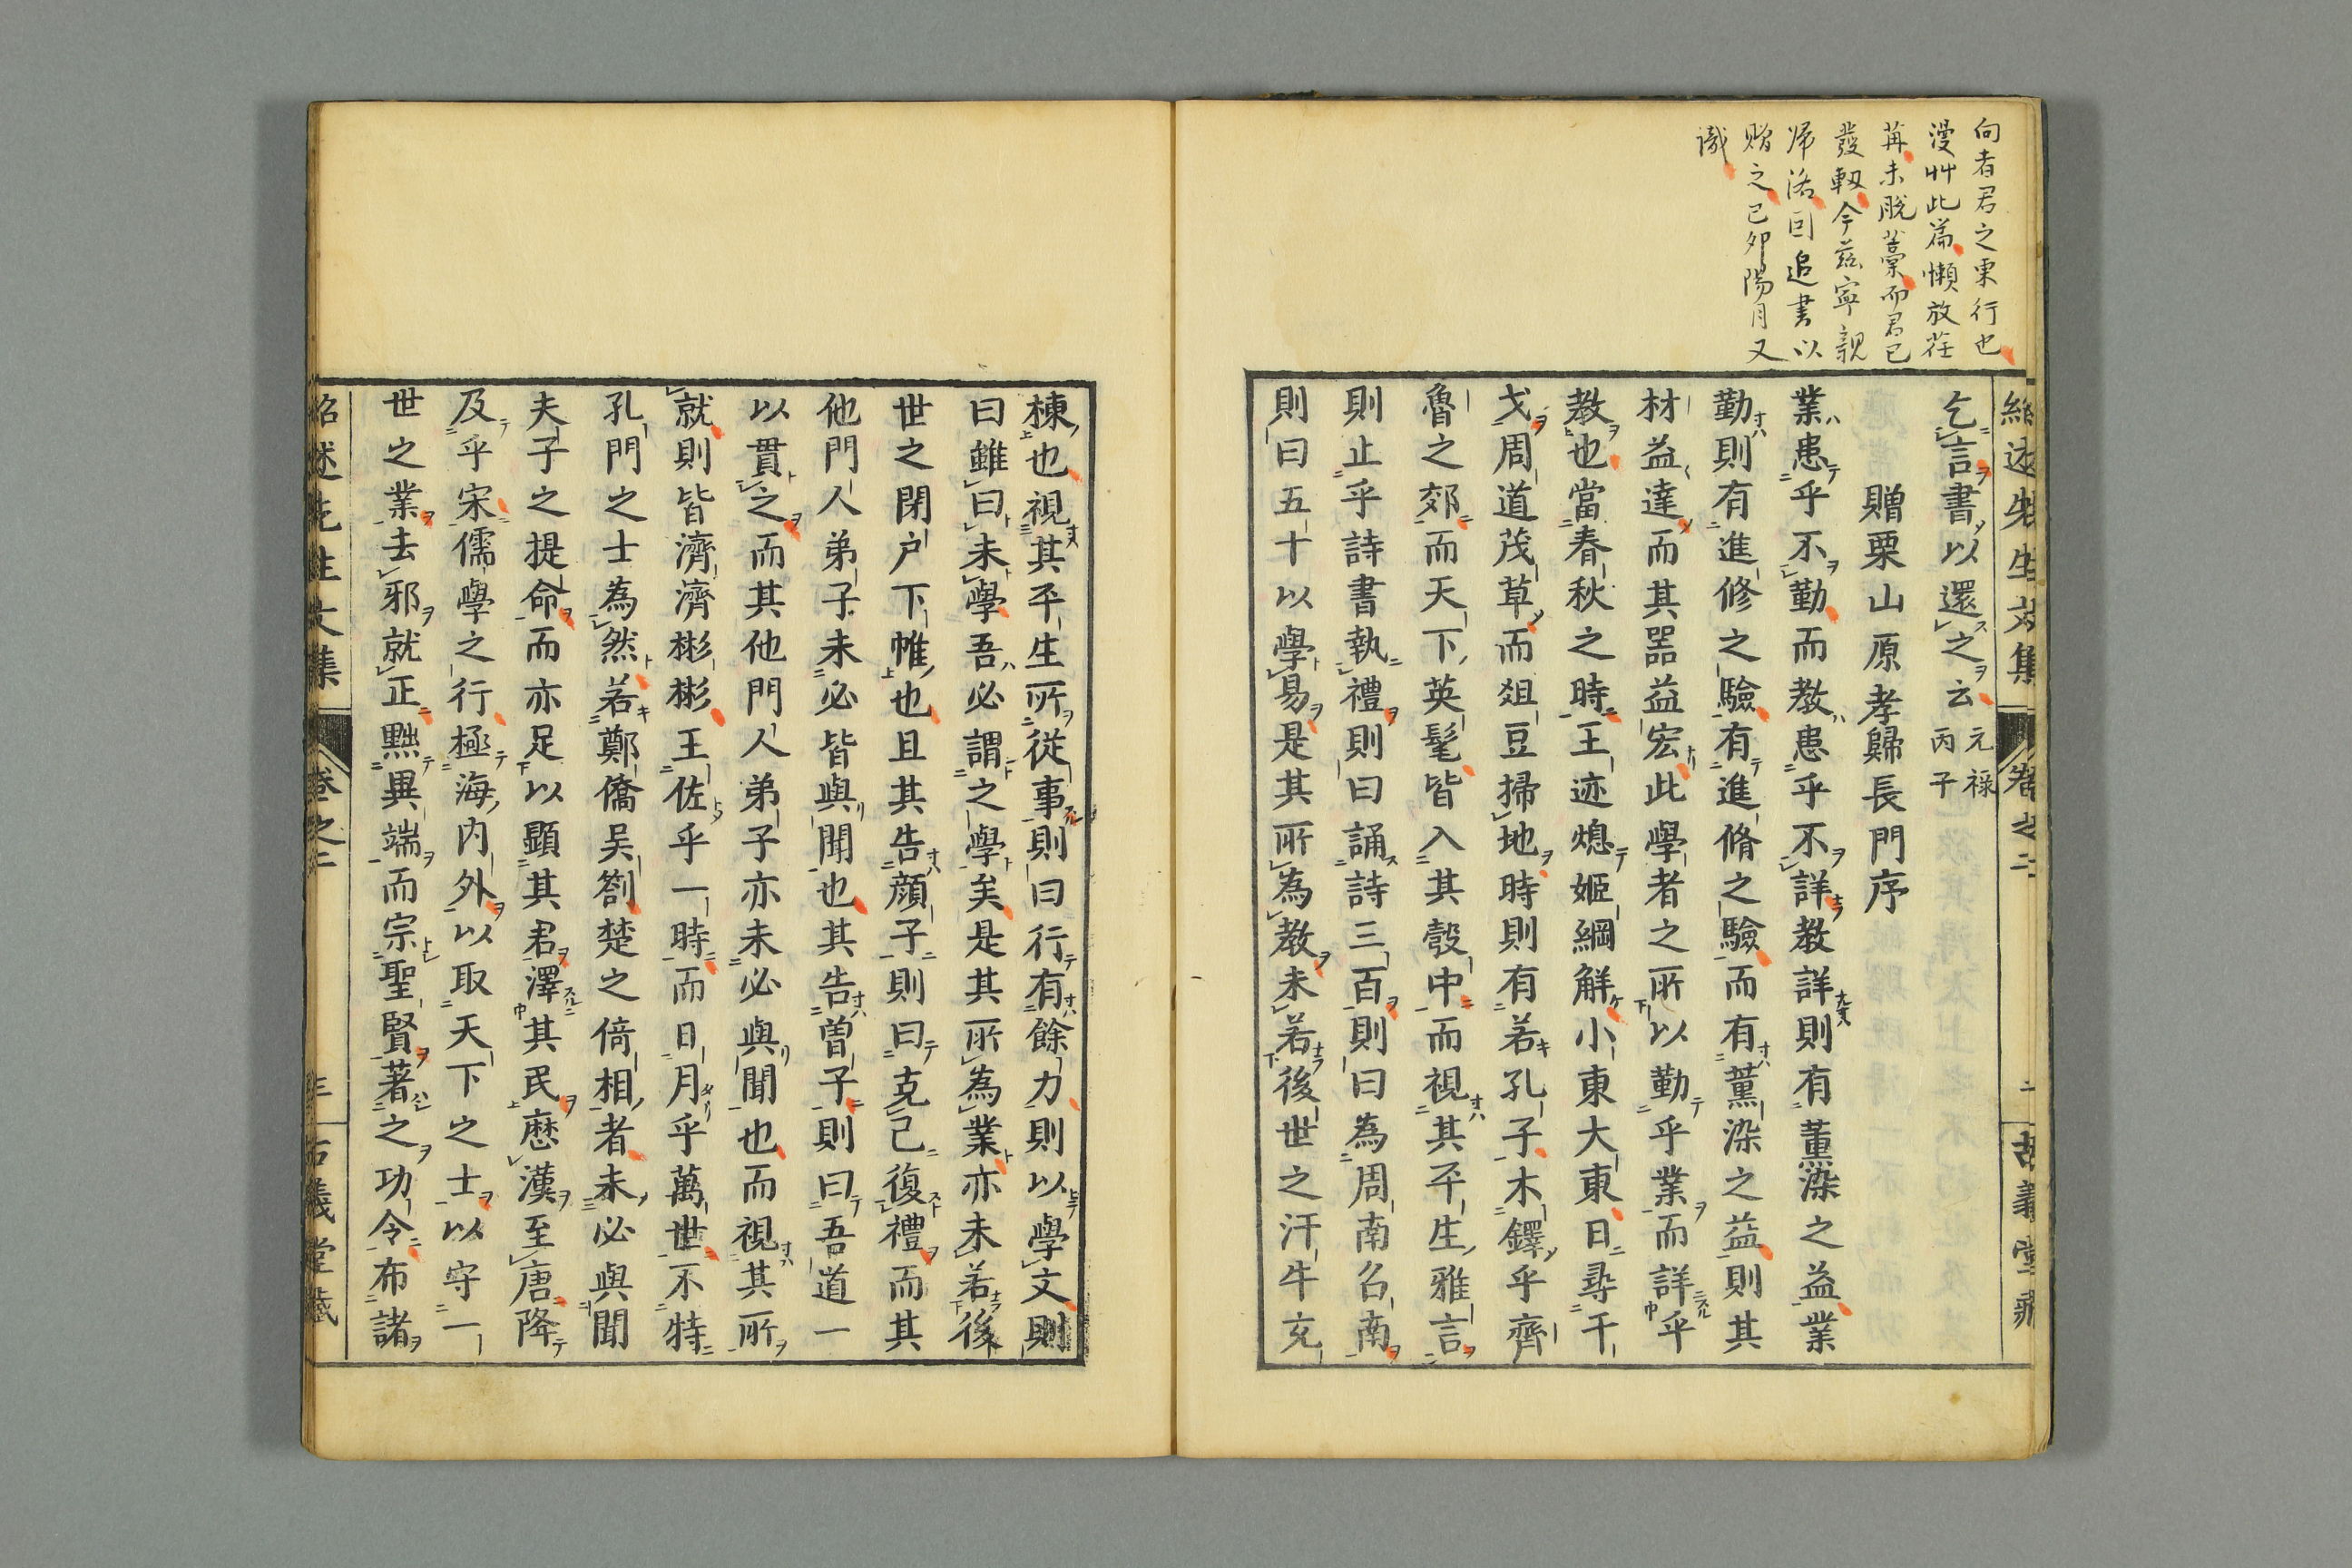 向者君之東行也
漫艸此篇懶放荏
苒未脱藁而君已
發軔今茲寧親
帰洛因追書以
贈之己卯陽月又
識
乞言書以還之云
元祿
丙子
贈栗山原孝歸長門序
業患乎不勤而教患乎不詳教詳則有薫染之益業
勤則有進修之驗有進脩之驗而有薫染之益則其
材益達而其噐益宏此學者之所以勤乎業而詳乎
教也當春秋之時王迹熄姬綱解小東大東日尋干
戈周道茂草而爼豆掃地時則有若孔子木鐸乎齊
魯之郊而天下英髦皆入其彀中而視其平生雅言
則止乎詩書執禮則曰誦詩三百則曰為周南召南
則曰五十以學易是其所為教未若後世之汗牛充
棟也視其平生所從事則曰行有餘力則以學文則
曰雖曰未學吾必謂之學矣是其所為業亦未若後
世之閉户下帷也且其告顔子則曰克己復禮而其
他門人弟子未必皆與聞也其告曽子則曰吾道一
以貫之而其他門人弟子亦未必與聞也而視其所
就則皆濟濟彬彬王佐乎一時而日月乎萬世不特
孔門之士為然若鄭僑吴劄楚之倚相者未必與聞
夫子之提命而亦足以顕其君澤其民歴漢至唐降
及乎宋儒學之行極海内外以取天下之士以守一
世之業去邪就正黜異端而宗聖賢著之功令布諸
紹述先生文集
卷之二
二
古義堂藏
紹述先生文集
卷之二
三
古義堂藏